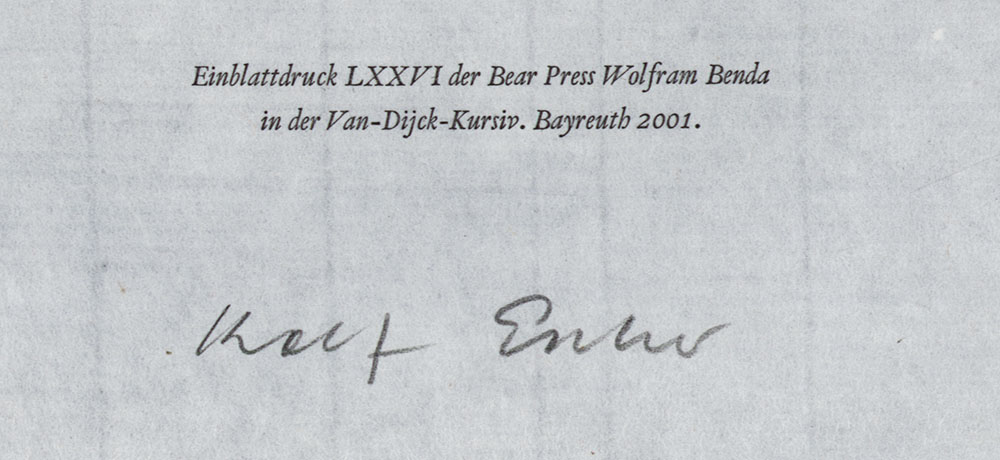 Einblattdruck LXXVI der Bear Press Wolfram Benda
in der Van-Dijck-Kursiv. Bayreuth 2001.
Rolf Escher